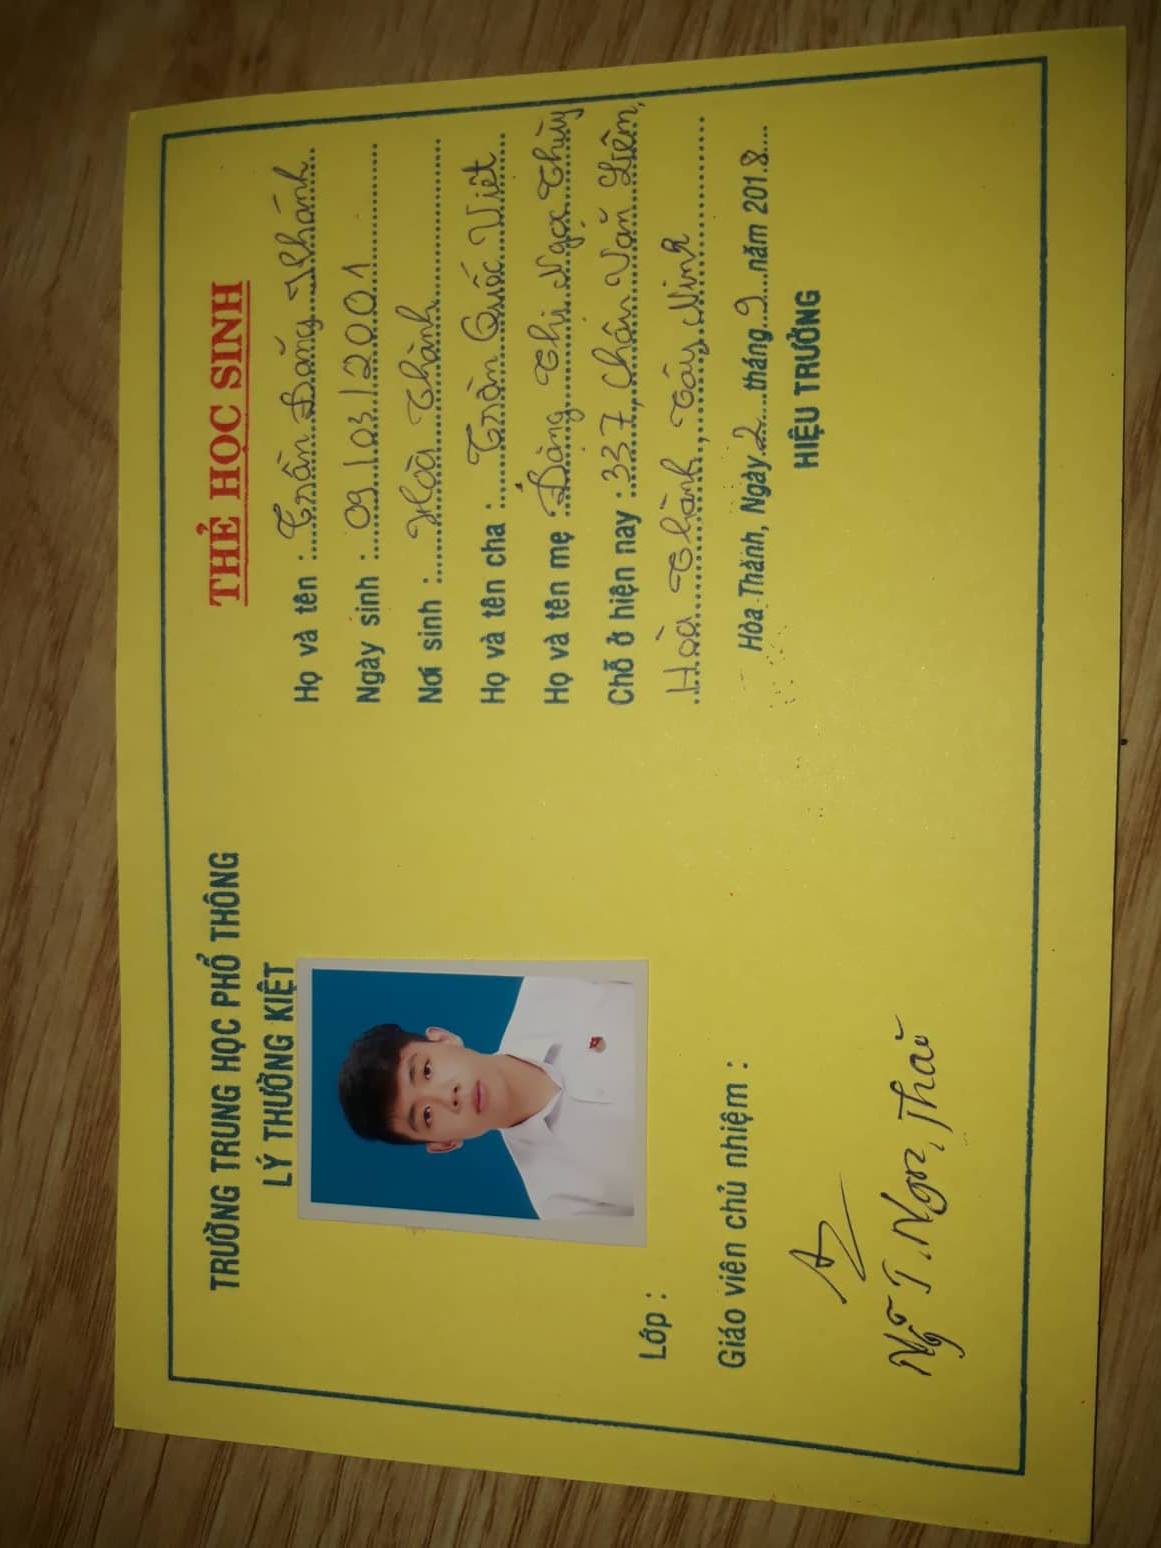 TRƯỜNG TRUNG HỌC PHỔ THÔNG
LÝ THƯỜNG KIỆT
Lớp :
Giáo viên chủ nhiệm :
Ngô T. Ngọc Thái
THẺ HỌC SINH
Họ và tên : Trần Đăng Khánh
Ngày sinh : 09/03/2001
Nơi sinh : Hoà Thành
Họ và tên cha : Trần Quốc Việt
Họ và tên mẹ : Đặng Thị Ngọc Thùy
Chỗ ở hiện nay : 337, Châu Văn Liêm,
Hoà Thành, Tây Ninh
Hòa Thành, Ngày 2 tháng 9 năm 2018
HIỆU TRƯỞNG